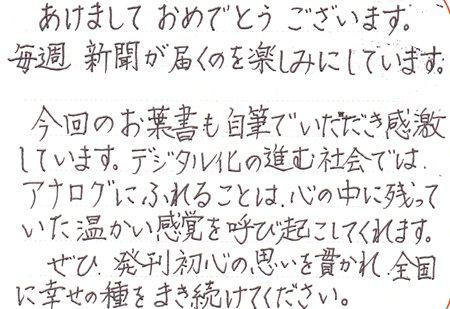 あけまして おめでとう ございます。
毎週 新聞が届くのを楽しみにしています。
今回のお葉書も自筆でいただき感激
しています。デジタル化の進む社会では、
アナログにふれることは、心の中に残って
いた温かい感覚を呼び起こしてくれます。
ぜひ、発刊初心の思いを貫かれ、全国
に幸せの種をまき続けてください。